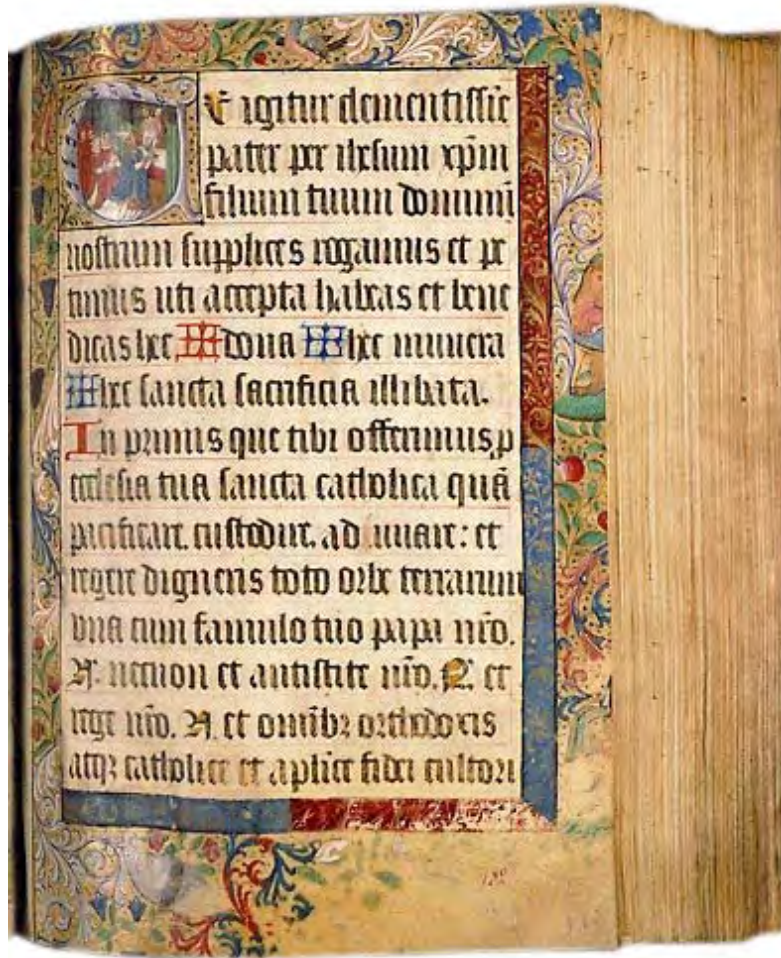 TE igitur clementissīe
pater per ihesum xp̄m
filium tuum dominū
nostrum supplices rogamus et pe
timus uti accepta habeas et bene
dicas hec ✠ dona ✠ hec munera
✠ hec sancta sacrificia illibata.
In primis que tibi offerimus, p
ecclesia tua sancta catholica quā
pacificare. custodire. ad unare: et
regere digneris toto orbe terrarum
vna cum famulo tuo papa nr̄o.
N. necnon et antistite nr̄o. N. et
rege nr̄o. N. et omībꝫ orthodoxis
atqꝫ catholice et aplice fidei cultori